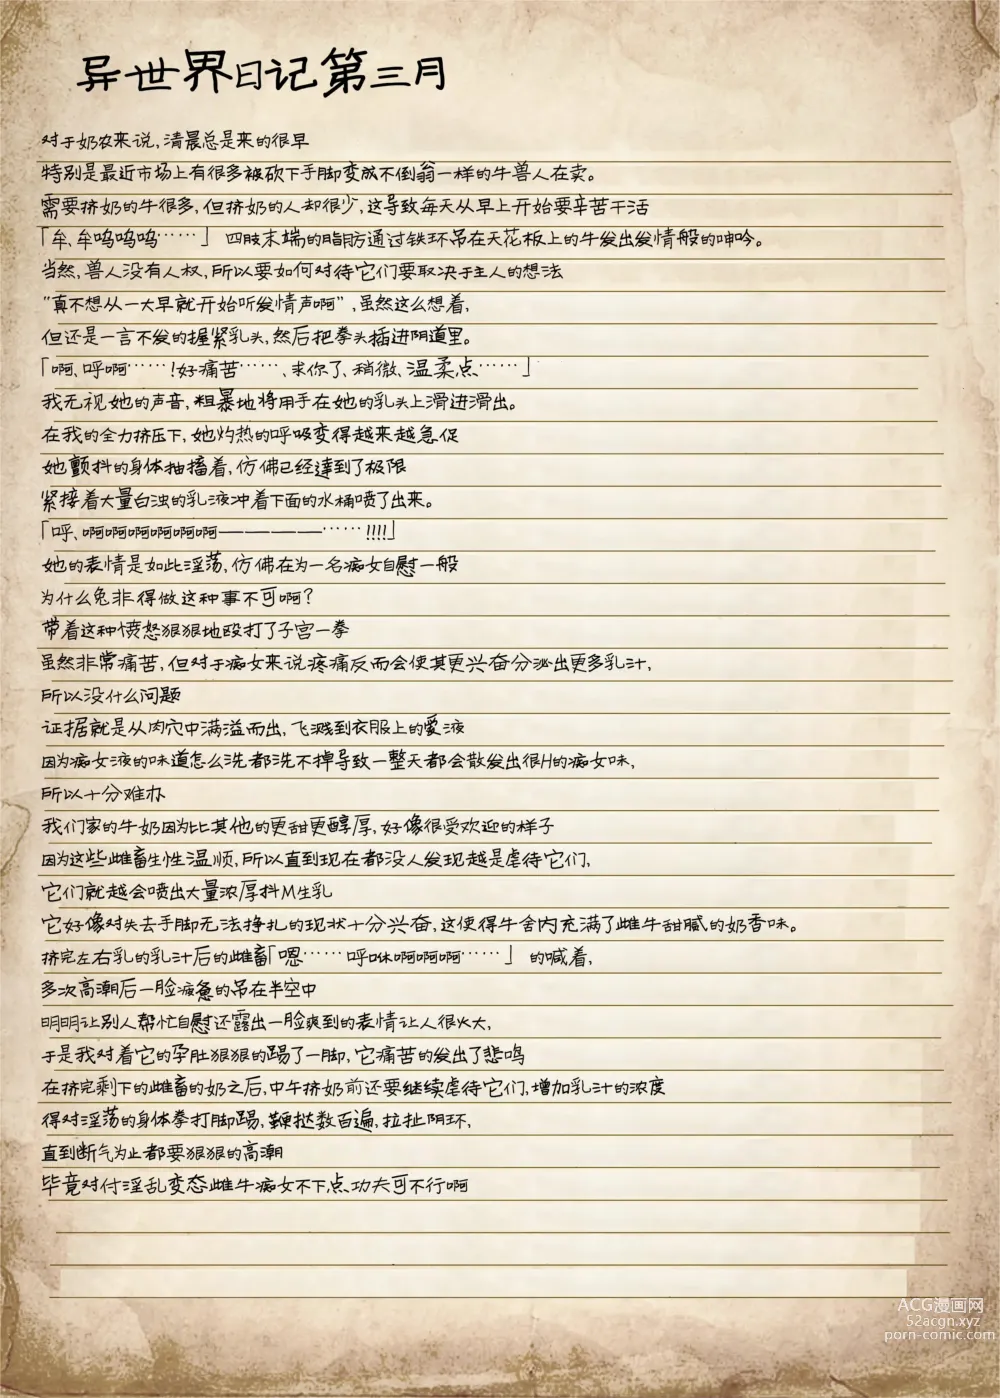 异世界日记第三月
对于奶农来说,清晨总是来的很早
特别是最近市场上有很多被砍下手脚变成不倒翁一样的牛兽人在卖。
需要挤奶的牛很多,但挤奶的人却很少,这导致每天从早上开始要辛苦干活
「牟、牟呜呜呜……」 四肢末端的脂肪通过铁环吊在天花板上的牛发出发情般的呻吟。
当然,兽人没有人权,所以要如何对待它们要取决于主人的想法
"真不想从一大早就开始听发情声啊",虽然这么想着,
但还是一言不发的握紧乳头,然后把拳头插进阴道里。
「啊、呼啊……!好痛苦……、求你了、稍微、温柔点……」
我无视她的声音,粗暴地将用手在她的乳头上滑进滑出。
在我的全力挤压下,她灼热的呼吸变得越来越急促
她颤抖的身体抽搐着,仿佛已经達到了极限
紧接着大量白浊的乳液冲着下面的水桶喷了出来。
「呼、啊啊啊啊啊啊————……!!!!」
她的表情是如此淫荡,仿佛在为一名痴女自慰一般
为什么兔非得做这种事不可啊?
带着这种愤怒狠狠地殴打了子宫一拳
虽然非常痛苦,但对于痴女来说疼痛反而会使其更兴奋分泌出更多乳汁,
所以没什么问题
证据就是从肉穴中满溢而出,飞溅到衣服上的爱液
因为痴女液的味道怎么洗都洗不掉导致一整天都会散发出很H的痴女味,
所以十分难办
我们家的牛奶因为比其他的更甜更醇厚,好像很受欢迎的样子
因为这些雌畜生性温顺,所以直到现在都没人发现越是虐待它们,
它们就越会喷出大量浓厚抖M生乳
它好像对失去手脚无法挣扎的现状十分兴奋,这使得牛舍内充满了雌牛甜腻的奶香味。
挤完左右乳的乳汁后的雌畜「嗯……呼咻啊啊啊……」 的喊着,
多次高潮后一脸疲惫的吊在半空中
明明让别人帮忙自慰还露出一脸爽到的表情让人很火大,
于是我对着它的孕肚狠狠的踢了一脚,它痛苦的发出了悲鸣
在挤完剩下的雌畜的奶之后,中午挤奶前还要继续虐待它们,增加乳汁的浓度
得对淫荡的身体拳打脚踢,鞭挞数百遍,拉扯阴环,
直到断气为止都要狠狠的高潮
毕竟对付淫乱变态雌牛痴女不下点功夫可不行啊
ACG漫画网
52acgn.xyz
porn-comic.com